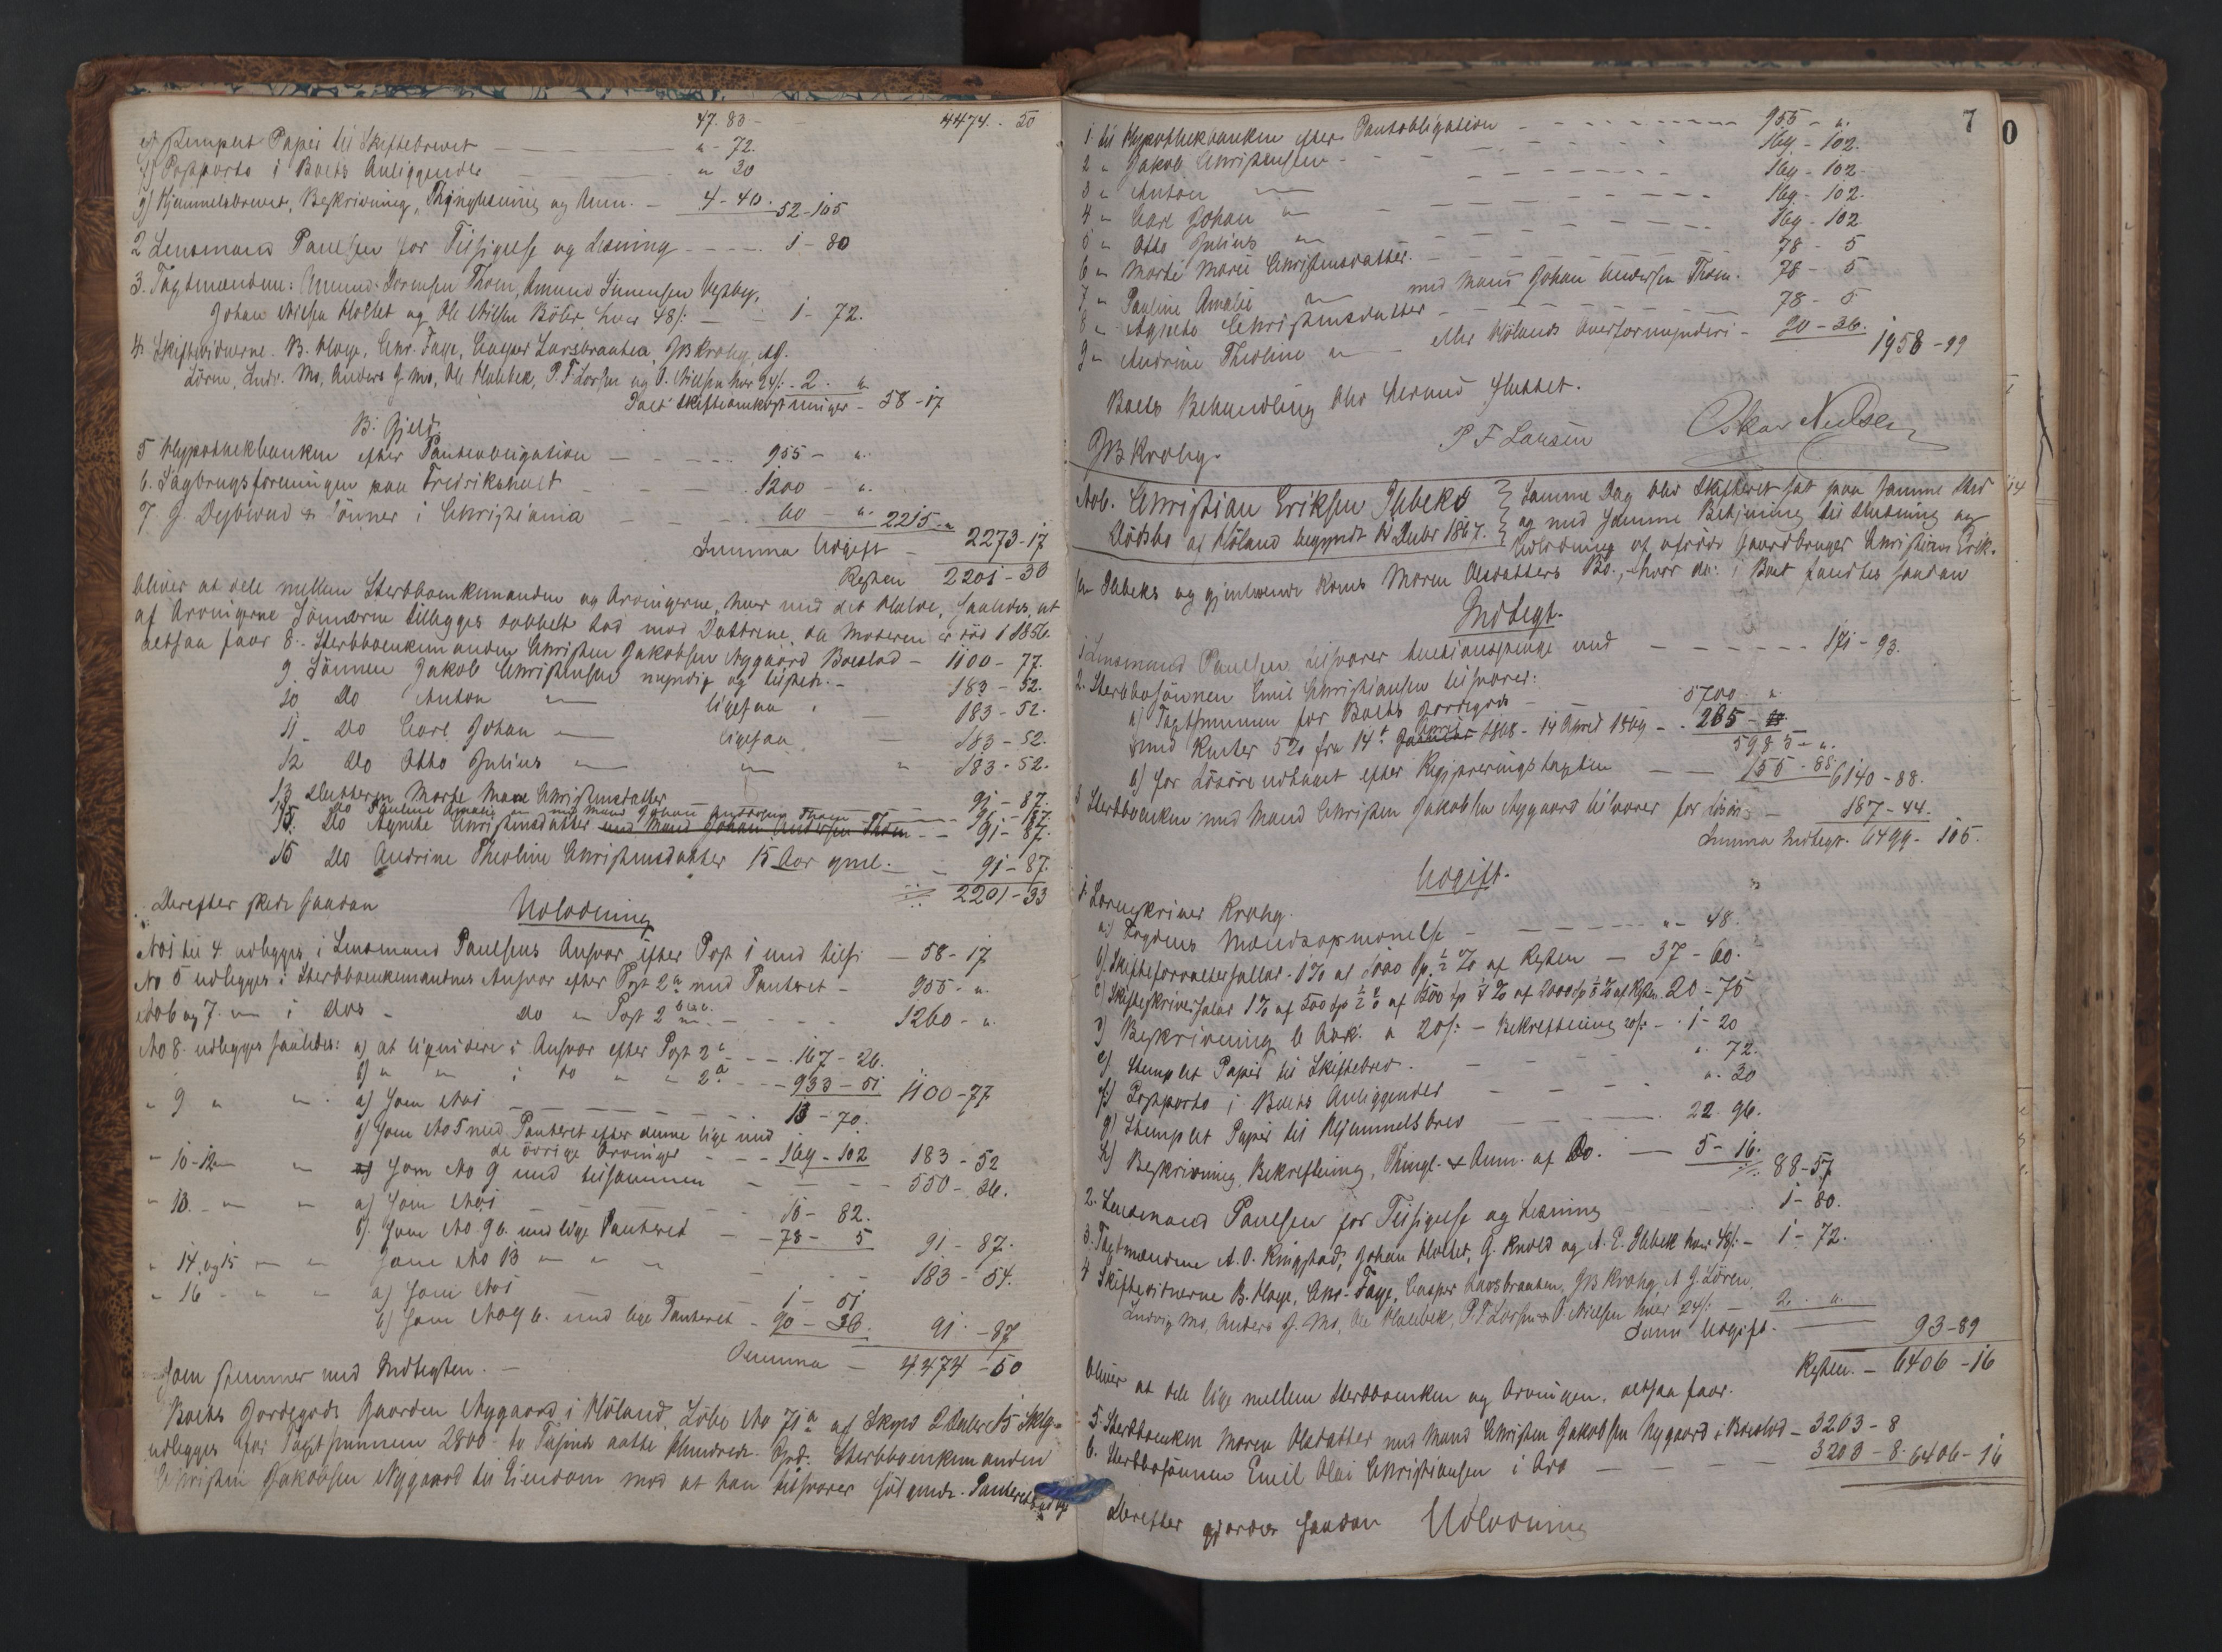 47. 83 - 4474. - 50
e) Stemplet Papir til Skiftebrevet — " - 72.
f) Postporto i Boets Anliggender — " 30
g) Hjemmelsbrevet, Beskrivning, Thinglæsning og Ann. — 4 - 40. 52-105
2 Lensmand Paulsen for Tilsigelse og Læsning - - - - 1 - 80
3. Taxtmændene: Amund Thom, Amund Simensen
Johan Nielsen Holtet og Ole Nielsen Böler, hver 48/: — - 1 - 72.
4. Skiftevidnerne. B. Hoge, Chr. Faye, Casper Larsbraaten, JB Krohg, AG.
Lören, Ludv. Mo, Anders G. Mo, Ole Holubek, P. F. Larsen og O. Nielsen hver 24/: - 2. "
Talt Skifteomkostninger - 58 - 17
B. Gjeld.
5 Hypothekbanken efter Panteobligation — - - - - 955 - ".
6. Sagbrugsforeningen paa Fredrikshald - - - 1200 - ".
7 J. Dybwad & Sönner i Christiania - - - 60 - ". 2215 - "
Summa Udgift - 2273-17
Resten 2201-33
bliver at dele mellem Sterbboenkemanden og Arvingerne, hver med det Halve, saaledes, at
af Arvingerne Sönnerne tillægges dobbelt Lod mod Döttrene, da Moderen er död i 1856.
altsaa faar 8. Sterbboenkemanden Christen Jakobsen Nygaard Boeslod - 1100 - 77.
9. Sönnen Jakob Christensen myndig og tilstede. - 183 - 52.
10 Do Anton " ligesaa . — 183 - 52.
11. Do Carl Johan — ligesaa — 183 - 52.
12 Do Otto Julius — " " 183 - 52.
13 Datteren Marte Marie Christensdatter — 91 - 87.
14. Do Pauline Amalie — med Mand Johan Andersen Thom — 91 - 87.
15. Do Agnete Christensdatter med Mand Johan Andersen Thom - - 91 - 87.
16 Do Andrine Theoline Christensdatter 15 Aar gml. - - 91 - 87.
2201-33
Derefter skede saadan Udlodning
No 1 til 4 udlægges i Lensmand Paulsens Ansvar efter Post 1 med tils. — 58 - 17
No 5 udlægges i Sterbboenkemandens Ansvar efter Post 2a med Panteret - 955 - ".
No 6 og 7 — i Do's - Do " Post 2 - - - - 1260 - ".
No 8. udlægges saaledes: a) at liquidere i Ansvar efter Post 2 - - - 167 - 26.
b) " " i do " " 2a - - - 933 - 51 1100-77
" 9 " " . a) som No 1 — — 13 - 70.
b) som No 5 med Panteret efter denne lige med
de övrige Arvinger - - - 169 - 102 183 - 52
" 10-12 — " som No 9 med tilsammen — — — - 550 - 36.
" 13. - " " a) som No 1 — — 13 - 82.
b) som No 9 b. med lige Panteret - - 78 - 5 91 - 87.
" 14 og 15 — " som No 13 — " " — — 183 - 54.
" 16 - " " a) som No 1 — 1 - 51
b) som No 9 b. med lige Panteret - 90 - 36. 91 - 87
Som stemmer med Indtægten. - Summa — 4474 - 50
Boets Jordegods Gaarden Nygaard i Höland Löbe No 71a af Skyld 2 Daler 15 Sklg
udlægges for Taxtsummen 2800 to Tusind aatte Hundrede Spd. Sterbboenkemanden
Christen Jakobsen Nygaard til Eiendom mod at han tilsvarer fölgende Panteret
7
1 til Hypothekbanken efter Pantobligation - - - - - - 955 - ".
2 " Jakob Christensen - - - - 169 - 102.
3 " Anton — - - - - 169 - 102.
4 " Carl Johan " - - - - 169 - 102.
5 " Otto Julius " - - - - 169 - 102
6 " Marte Marie Christensdatter. - - - - 78 - 5
7 " Pauline Amalie — med Mand Johan Andersen Thom. - 78 - 5
8 " Agnete Christensdatter - - - - 78 - 5
9 " Andrine Theoline " — eller Hölands Overformynderi - 90 - 36. 1958-99
Boets Behandling blev herved sluttet.
JB Krohg. P F Larsen Oskar Nielsen
No 6. Christian Eriksen Ihbeks
Dödsbo af Höland begyndt 14 Decbr 1867.
Samme Dag blev Skifteret sat paa samme Sted
og med samme Betjening til Slutning og
Udlodning af afdöde Gaardbruger Christian Erik-
sen Ihbeks og gjenlevende Kones Maren Olsdatters Bo, hvor da: i Boet fandtes saadan
Indtægt.
1 Lensmand Paulsen tilsvarer Auctionspenge med - - - - - - 171 - 93.
2. Sterbbosönnen Emil Christiansen tilsvarer:
a) Taxtsummen for Boets Jordegods - 5700 ".
med Renter 5% fra 14de Januar April 1868 - 14 April 1869 - . 285 - "
5985 - ".
b) for Lösöre udtaget efter Registreringstaxten — — 155 - 88. 6140-88.
3 Sterbboenken med Mand Christen Jakobsen Nygaard tilsvarer for Lösöre - 187-44.
Summa Indtægt. 6499 - 105.
Udgift.
1. Sorenskriver Krohg.
a) Lagrettes Mændsopnævnelse - — — - - - " - 48.
b) Skifteforvaltersallar. 1% af 1000 Sp. ½ % af Resten — 37 - 60.
c) Skifteskriversalar 1% af 500 Sp ½ % af 1500 Sp ¼ % af 2000 Sp ⅛ % af Resten. 20 - 75
d) Beskrivning 6 Ark. a 20/: - Bekræftelse 20/: - . 1 - 20
e) Stemplet Papir til Skiftebrev. - - ". 72.
f) Postporto i Boets Anliggender - - - ". 30
g) Stemplet Papir til Hjemmelsbrev — - - 22. 96.
h) Beskrivning, Bekræftning, Thingl. & Ann. af Do. — 5 - 16. 88-57
2. Lensmand Paulsen for Tilsigelse og Læsning - - 1 - 80.
3. Taxtmændene A. O. Ringstad, Johan Holtet, G. Knold og A. E. Ihbek hver 48/: - 1 - 72.
4 Skiftevidnerne B. Hoge, Chr. Faye, Casper Larsbraaten, JB Krohg, A G. Lören,
Ludvig Mo, Anders G. Mo, Ole Holubek, P. F. Larsen & O. Nielsen hver 24/: — 2. ".
Sum Udgift. — 93-89
Resten. — 6406 - 16
bliver at dele lige mellem Sterbboenken og Arvingen, altsaa faar.
5. Sterbboenken Maren Olsdatter med Mand Christen Jakobsen Nygaard i Boeslod - 3203 - 8
6. Sterbbosönnen Emil Olai Christiansen i Arv — — — 3203 - 8. 6406-16
Derefter gjordes saadan Udlodning
0